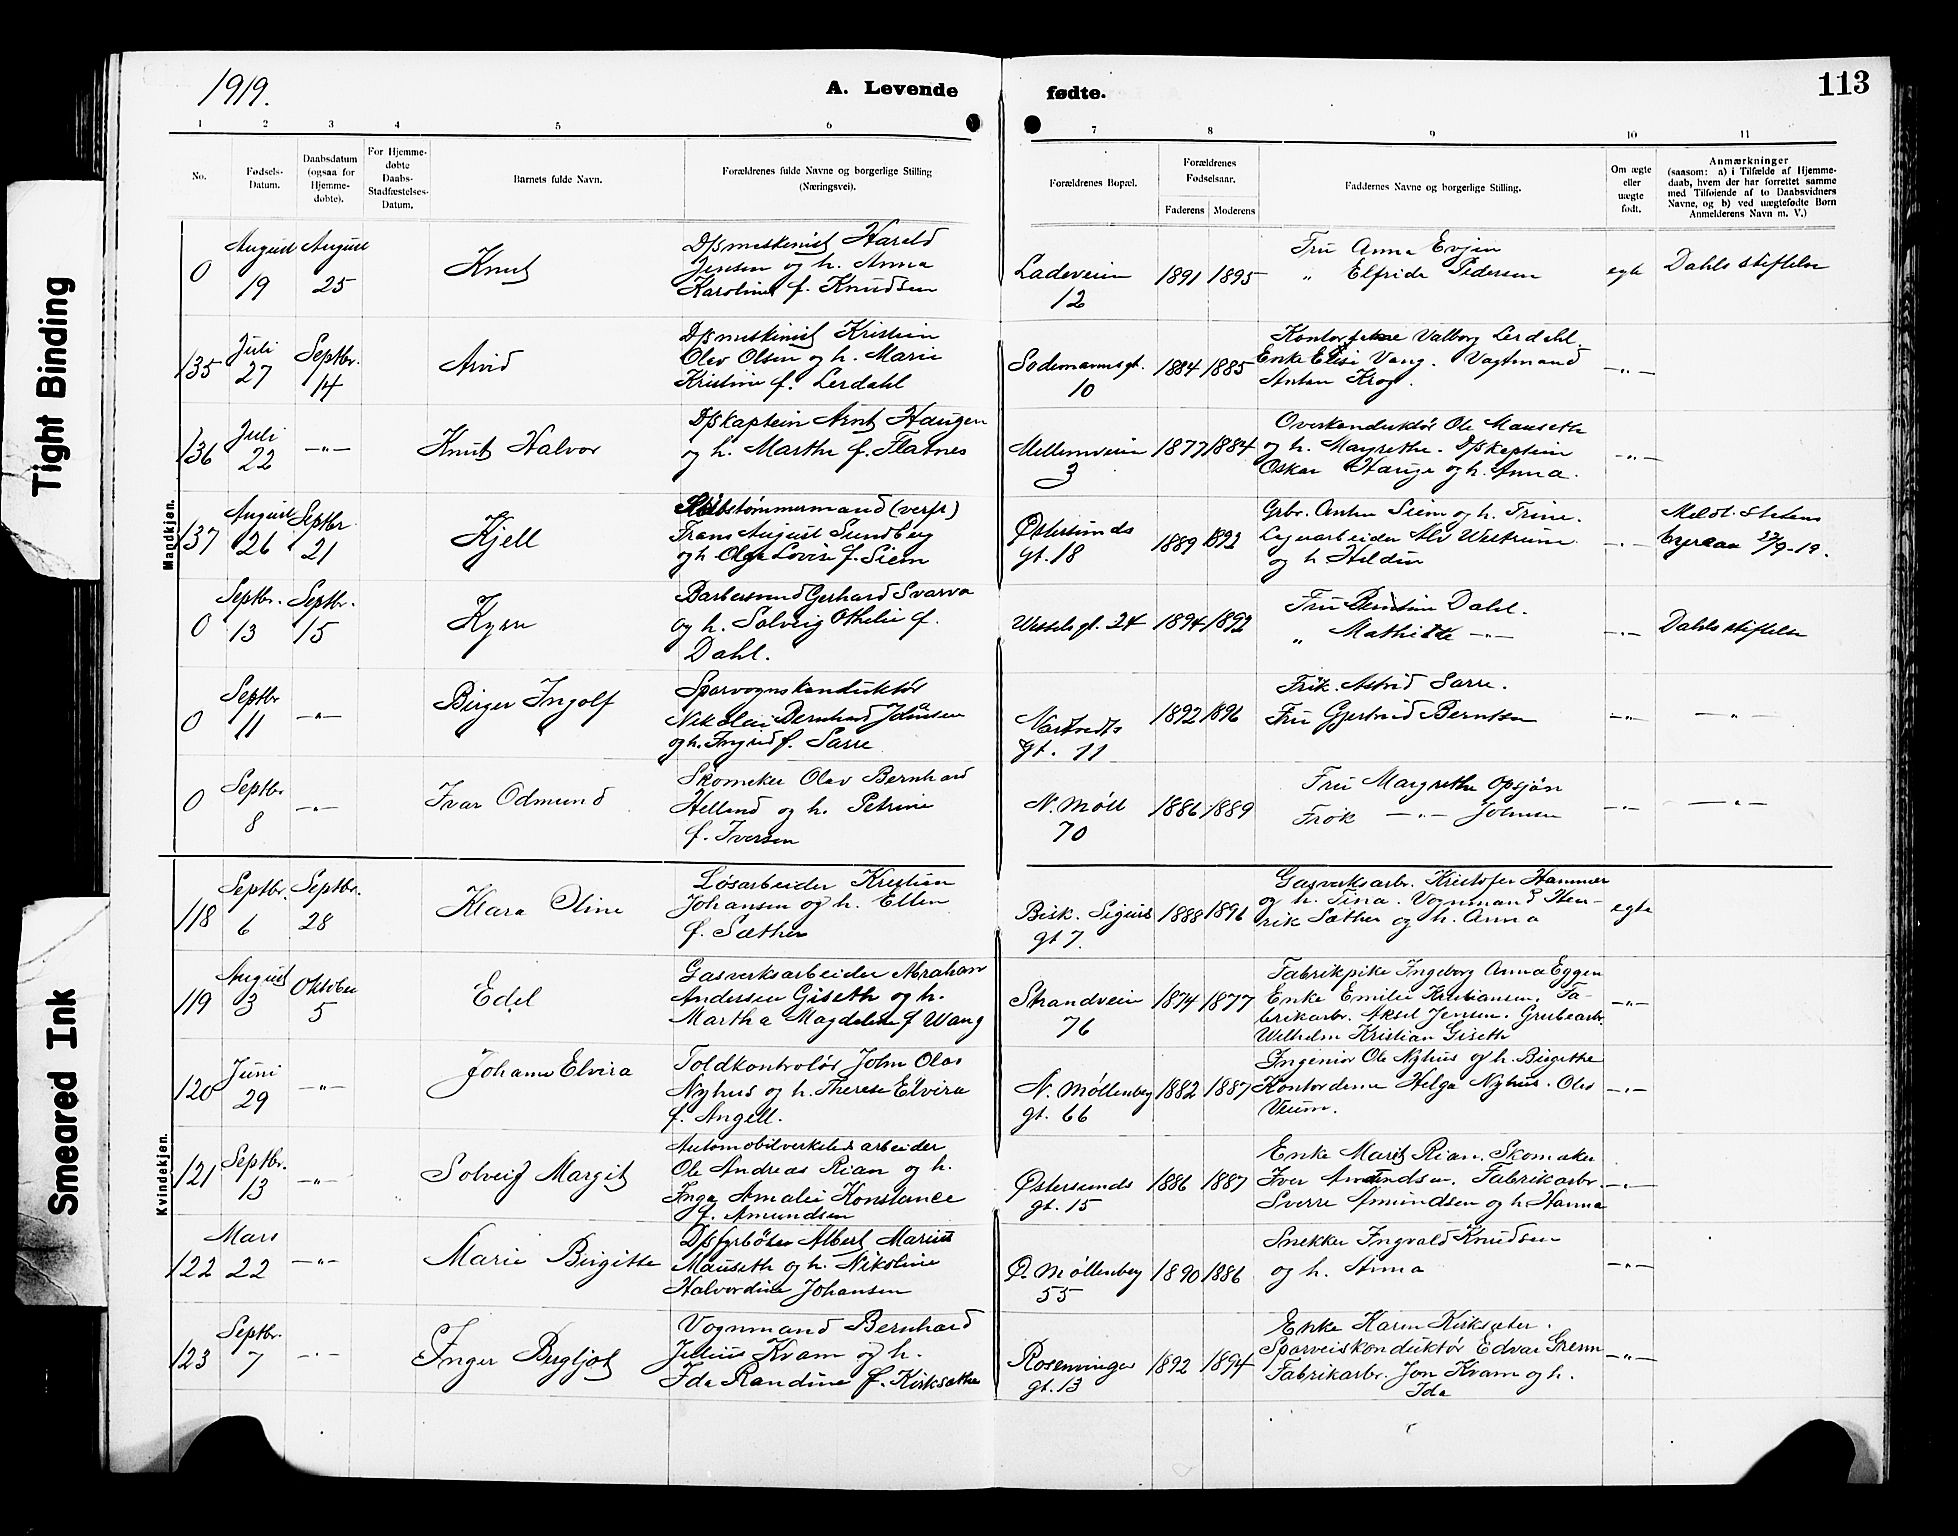 1919.
A. Levende fødte.
113
Tight Binding
Smeared Ink
1 2 3 4 5 6 7 8 9 10 11
No.
Fødsels-
Datum.
Daabsdatum
(ogsaa for
Hjemme-
døbte).
For Hjemme-
døbte
Daabs-
Stadfæstelses-
Datum.
Barnets fulde Navn.
Forældrenes fulde Navne og borgerlige Stilling
(Næringsvei).
Forældrenes Bopæl.
Forældrenes
Fødselsaar.
Faderens Moderens
Faddernes Navne og borgerlige Stilling.
Om ægte
eller
uægte
født.
Anmærkninger
(saasom: a) i Tilfælde af Hjemme-
daab, hvem der har forrettet samme
med Tilføiende af to Daabsvidners
Navne, og b) ved uægtefødte Børn
Anmelderens Navn m. V.)
Mandkjøn.
0
August
19
August
25
Knut
D/s maskinist Harald
Jensen og h. Anna
Karoline f. Knudsen
Ladeveien
12
1891 1895
Fru Anna Evjen
" Elfride Pedersen
egte
Dahls stiftelse
135
Juli
27
Septbr.
14
Arvid
D/s maskinist Kristian
Olav Olsen og h. Marie
Kristine f. Lerdahl
Sodemannsgt.
10
1884 1885
Valborg Lerdahl.
Enke Elise Vang. Vagtmand
Anton Krog.
-"-
136
Juli
22
-"-
Knut Halvor
D/s kaptein Arnt Haugen
og h. Marthe f. Flatnes
Mellemveien
3
1877 1884
Overkonduktør Ole Mauseth
og h. Margrethe. D/s kaptein
Oskar Hauge og h. Anna.
-"-
137
August
26
Septbr.
21
Kjell
Skibstømmermand (verft)
Frans August Sundberg
og h. Olga Lovise f. Siem
Østersunds
gt. 18
1889 1892
Grbr. Anton Siem og h. Trine.
Lagerarbeider Alv Westrum
og h. Heldin
-"-
Meldt. Statens
/9-19.
0
Septbr.
13
Septbr.
15
Kyrre
Barbersvend Gerhard Svarva
og h. Solveig Othelie f.
Dahl.
Wesselsgt. 24
1894 1892
Fru Berntine Dahl.
" Mathilde -"-
-"-
Dahls stiftelse
0
Septbr
11
-"-
Birger Ingolf
Sporvognskonduktør
Nikolai Bernhard Johnsen
og h. Ingrid f. Sarre
gt. 11
1892 1896
Frøk. Astrid Sarre.
Fru Gjertrud Berntsen
-"-
-"-
0
Septbr
8
-"-
Ivar Odmund
Skomaker Olav Bernhard
Helland og h. Petrine
f. Iversen
N. Møll
70
1886 1889
Fru Margrethe Opsjøn
Frøk -"- Johnsen
-"-
-"-
Kvindekjøn.
118
Septbr.
6
Septbr.
28
Klara Oline
Løsarbeider Kristian
Johansen og h. Ellen
f. Sæther
Bisk. Sigurds
gt 7.
1888 1896
Gasverksarbr. Kristofer Hammer
og h. Tina. Vognmand Hen-
rik Sæther og h. Anna
egte
119
August
3
Oktober
5
Edel
Gasverksarbeider Abraham
Andersen Giseth og h.
Martha Magdalene f Wang
Strandveien
76
1874 1877
Fabrikpike Ingeborg Anna Eggen
Enke Emilie Kristiansen. Fa-
brikarbr. Aksel Jensen. Grubearbr.
Wilhelm Kristian Giseth
-"-
120
Juni
29
-"-
Johanne Elvira
Toldkontrolør John Olas
Nyhus og h. Therese Elvira
f. Angell.
N. Møllenberg
gt. 66
1882 1887
Ingeniør Ole Nyhus og h. Birgithe
Kontordame Helga Nyhus. Olav
Veium.
-"-
121
Septbr.
13
-"-
Solveig Margit
Automobilverksteds arbeider
Ole Andreas Rian og h.
Inga Amalie Konstance
f. Amundsen
Østersunds
gt. 15
1886 1887
Enke Marit Rian. Skomaker
Iver Amundsen. Fabrikarbr.
Sverre Amundsen og h. Hanna
-"-
122
Mars
22
-"-
Marie Birgitte
D/s fyrbøter Albert Marius
Mauseth og h. Nikoline
Halvordine Johansen
Ø. Møllenberg
55
1890 1886
Snekker Ingvald Knudsen
og h. Anna
-"-
123
Septbr.
7
-"-
Inger Bergljot
Vognmand Bernhard
Julius Kvam og h.
Ida Randine f. Kirksæther
Rosenvinges
gt. 13
1892 1894
Enke Karen Kirksæter.
Sporveiskonduktør Edvar Grenn
Fabrikarbr. Jon Kvam og h.
Ida
-"-